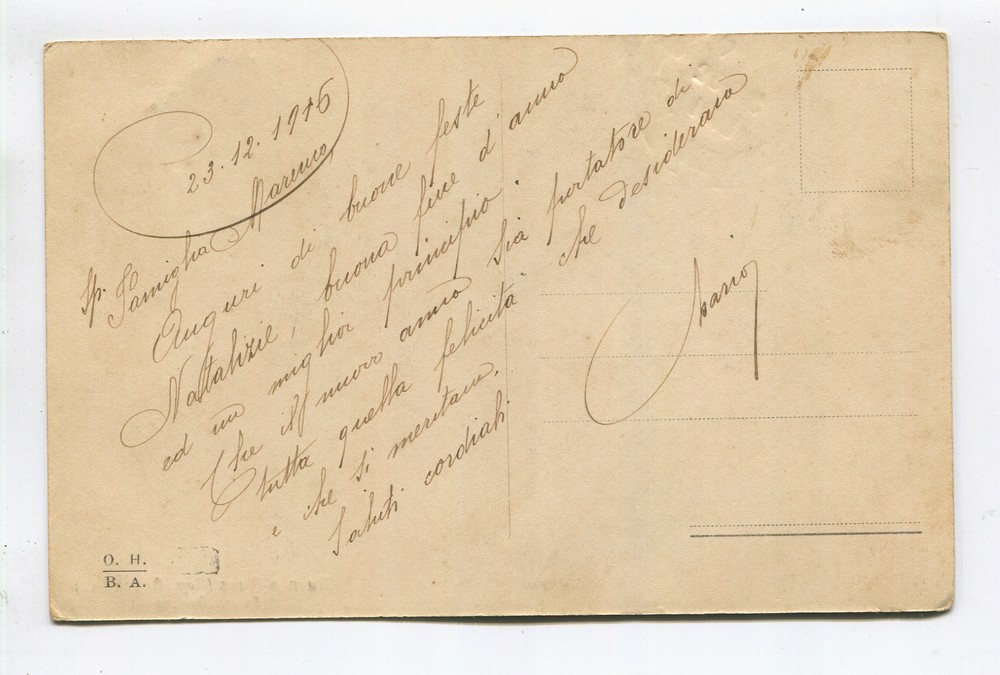 23.12.1915
Sp. Famiglia Marino
Auguri di buone feste
Natalizie, buona fine d'anno
ed un miglior principio.
Che il nuovo anno sia portatore di
tutta quella felicità che desiderano
e che si meritano.
Saluti cordiali.
Mario
O. H.
B. A.